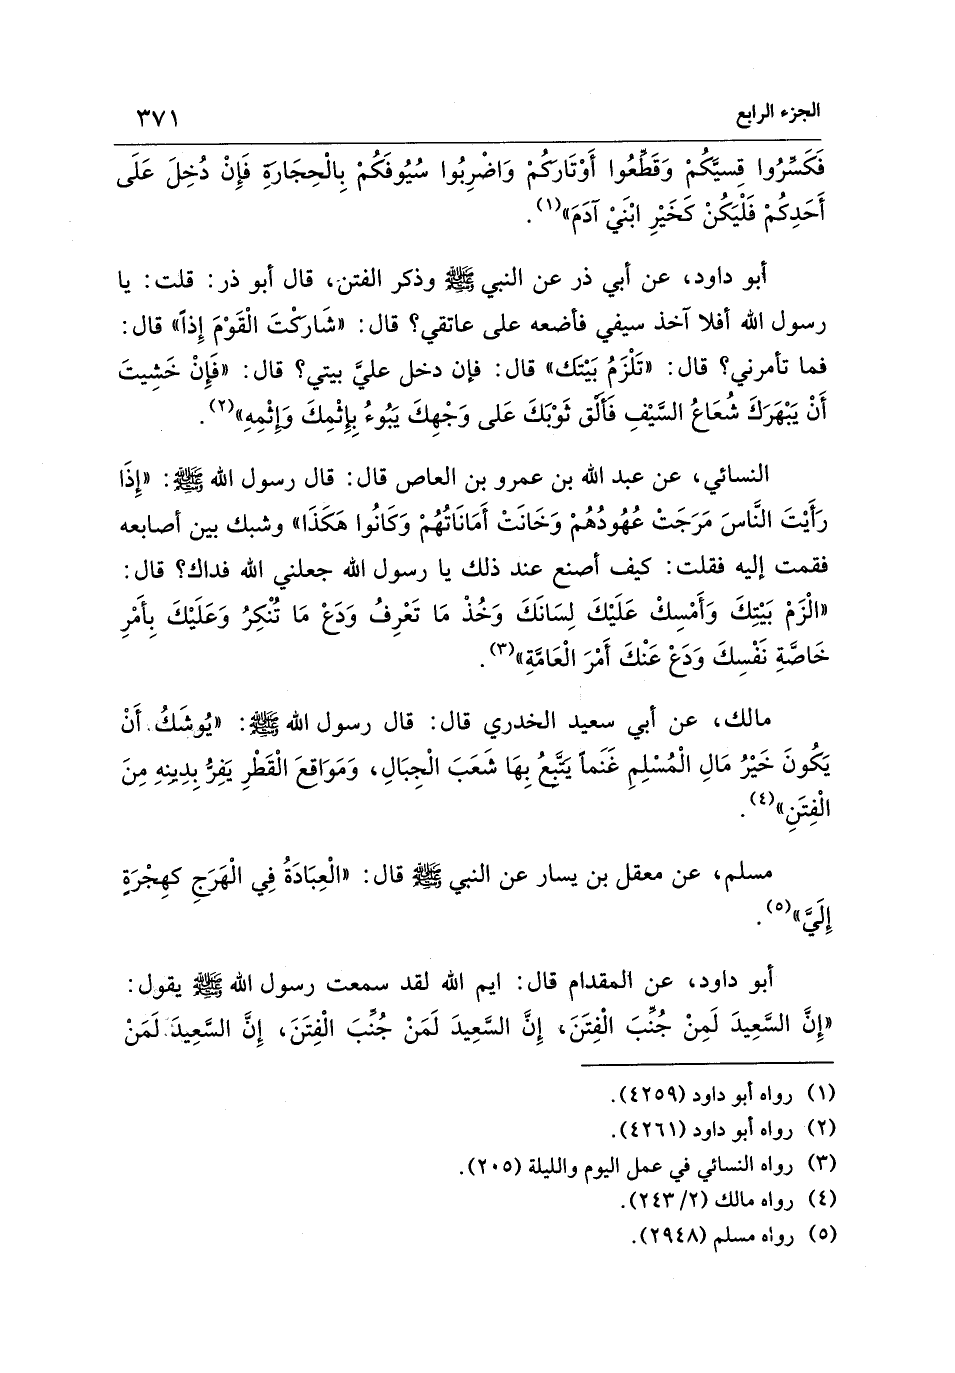 الجزء الرابع ٣٧١
فَكَسِّرُوا قِسيَّكُمْ وَقَطِّعُوا أَوْتَارَكُمْ وَاضْرِبُوا سُيُوفَكُمْ بِالْحِجَارَةِ فَإِنْ دُخِلَ عَلَى
أَحَدِكُمْ فَلْيَكُنْ كَخَيْرِ ابْنَيْ آدَمَ»(١).
أبو داود، عن أبي ذر عن النبي ﷺ وذكر الفتن، قال أبو ذر: قلت: يا
رسول الله أفلا آخذ سيفي فأضعه على عاتقي؟ قال: «شَارَكْتَ الْقَوْمَ إِذاً» قال:
فما تأمرني؟ قال: «تَلْزَمُ بَيْتَك» قال: فإن دخل عليَّ بيتي؟ قال: «فَإِنْ خَشِيتَ
أَنْ يَبْهَرَكَ شُعَاعُ السَّيْفِ فَأَلْق ثَوْبَكَ عَلى وَجْهِكَ يَبُوءُ بِإِثْمِكَ وَإِثْمِهِ»(٢).
النسائي، عن عبد الله بن عمرو بن العاص قال: قال رسول الله ﷺ: «إِذَا
رَأَيْتَ النَّاسَ مَرَجَتْ عُهُودُهُمْ وَخَانَتْ أَمَانَاتُهُمْ وَكَانُوا هَكَذَا» وشبك بين أصابعه
فقمت إليه فقلت: كيف أصنع عند ذلك يا رسول الله جعلني الله فداك؟ قال:
«الْزَمْ بَيْتِكَ وَأَمْسِكْ عَلَيْكَ لِسَانَكَ وَخُذْ مَا تَعْرِفُ وَدَعْ مَا تُنْكِرُ وَعَلَيْكَ بِأَمْرِ
خَاصَّةِ نَفْسِكَ وَدَعْ عَنْكَ أَمْرَ الْعَامَّةِ»(٣).
مالك، عن أبي سعيد الخدري قال: قال رسول الله ﷺ: «يُوشَكُ أَنْ
يَكُونَ خَيْرُ مَالِ الْمُسْلِمِ غَنَماً يَتَّبِعُ بِهَا شَعَبَ الْجِبَالِ، وَمَوَاقِعَ الْقَطْرِ يَفِرُّ بِدِينِهِ مِنَ
الْفِتَنِ»(٤).
مسلم، عن معقل بن يسار عن النبي ﷺ قال: «الْعِبَادَةُ فِي الْهَرَجِ كهِجْرَةٍ
إِلَيَّ»(٥).
أبو داود، عن المقدام قال: ايم الله لقد سمعت رسول الله ﷺ يقول:
«إِنَّ السَّعِيدَ لَمِنْ جُنِّبَ الْفِتَنَ، إِنَّ السَّعِيدَ لَمَنْ جُنِّبَ الْفِتَنَ، إِنَّ السَّعِيدَ لَمَنْ
(١) رواه أبو داود (٤٢٥٩).
(٢) رواه أبو داود (٤٢٦١).
(٣) رواه النسائي في عمل اليوم والليلة (٢٠٥).
(٤) رواه مالك (٢/ ٢٤٣).
(٥) رواه مسلم (٢٩٤٨).